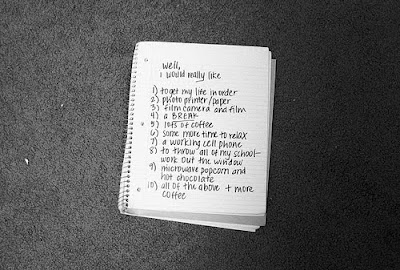 well,
i would really like
1) to get my life in order
2) photo printer/paper
3) film camera and film
4) a BREAK
5) lots of coffee
6) some more time to relax
7) a working cell phone
8) to throw all of my school-
work out the window
9) microwave popcorn and
hot chocolate
10) all of the above + more
coffee